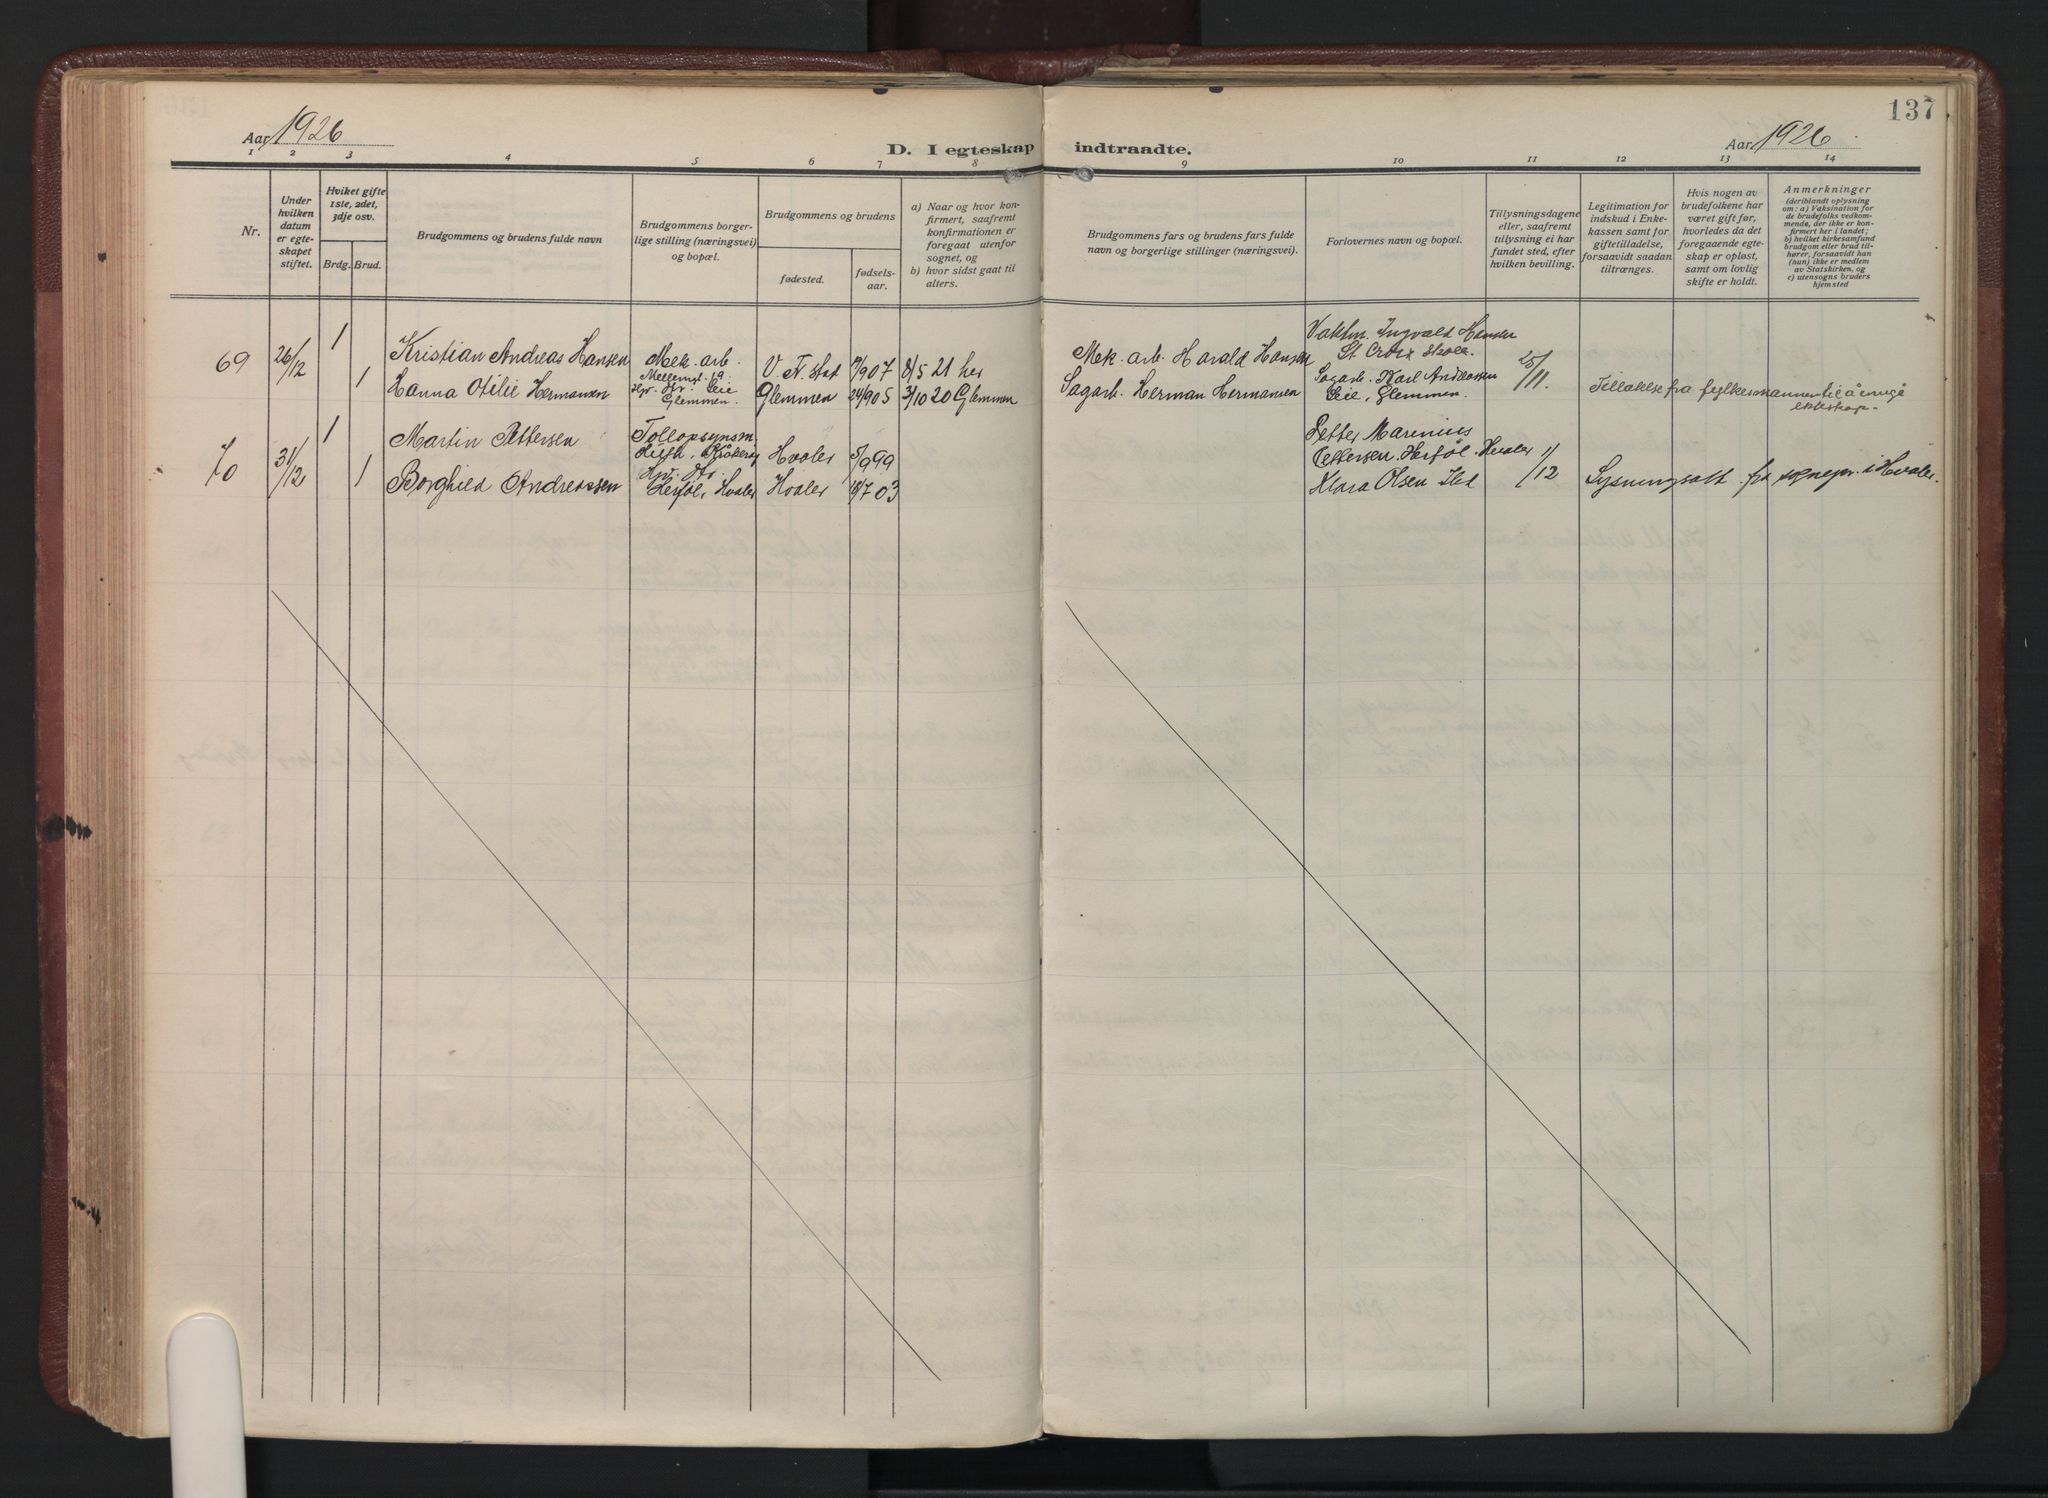 137
Aar 1926
D. I egteskap indtraadte.
Aar 1926
1 2 3 4 5 6 7 8 9 10 11 12 13 14
Nr.
Under
hvilken
datum
er egte-
skapet
stiftet.
Hviket gifte
1ste, 2det,
3dje osv.
Brdg. Brud.
Brudgommens og brudens fulde navn
Brudgommens borger-
lige stilling (næringsvei)
og bopæl.
Brudgommens og brudens
fødested.
fødsels-
aar.
a) Naar og hvor kon-
firmert, saafremt
konfirmationen er
foregaat utenfor
sognet, og
b) hvor sidst gaat til
alters.
Brudgommens fars og brudens fars fulde
navn og borgerlige stillinger (næringsvei).
Forlovernes navn og bopæl.
Tillysningsdagene
eller, saafremt
tillysning ei har
fundet sted, efter
hvilken bevilling.
Legitimation for
indskud i Enke-
kassen samt for
giftetilladelse,
forsaavidt saadan
tiltrænges.
Hvis nogen av
brudefolkene har
været gift før,
hvorledes da det
foregaaende egte-
skap er opløst,
samt om lovlig
skifte er holdt.
Anmerkninger
(deriblandt oplysning
om: a) Vaksination for
de brudefolks vedkom-
mende, der ikke er kon-
firmert her i landet;
b) hvilket kirkesamfund
brudgom eller brud til-
hører, forsaavidt han
(hun) ikke er medlem
av Statskirken, og
c) utensogns bruders
hjemsted
69 26/12 1
Kristian Andreas Hansen
Mek. arb.
V. Fr. stad
/907 8/5 21 her
Mek. arb. Harald Hansen
Vaktm. Ingvald Hansen
St. Croix skole.
25/11.
1
Hanna Otilie Hermansen
Glemmen.
Glemmen 24/905 3/10 20 Glemmen
Sagarb. Herman Hermansen
Sagarb. Karl Andreassen
Leie, Glemmen.
Tillatelse fra fylkesmannen til å inngå
ekteskap.
70 31/12 1
Martin Pettersen
Tollopsynsm.
Hvaler 5/999
Petter Marinius
Pettersen. Herføl. Hvaler
1/12
1
Borghild Andreassen
Herføl, Hvaler
Hvaler 18/703
Klara Olsen
Lysningsatt. fra sognepr. i Hvaler.